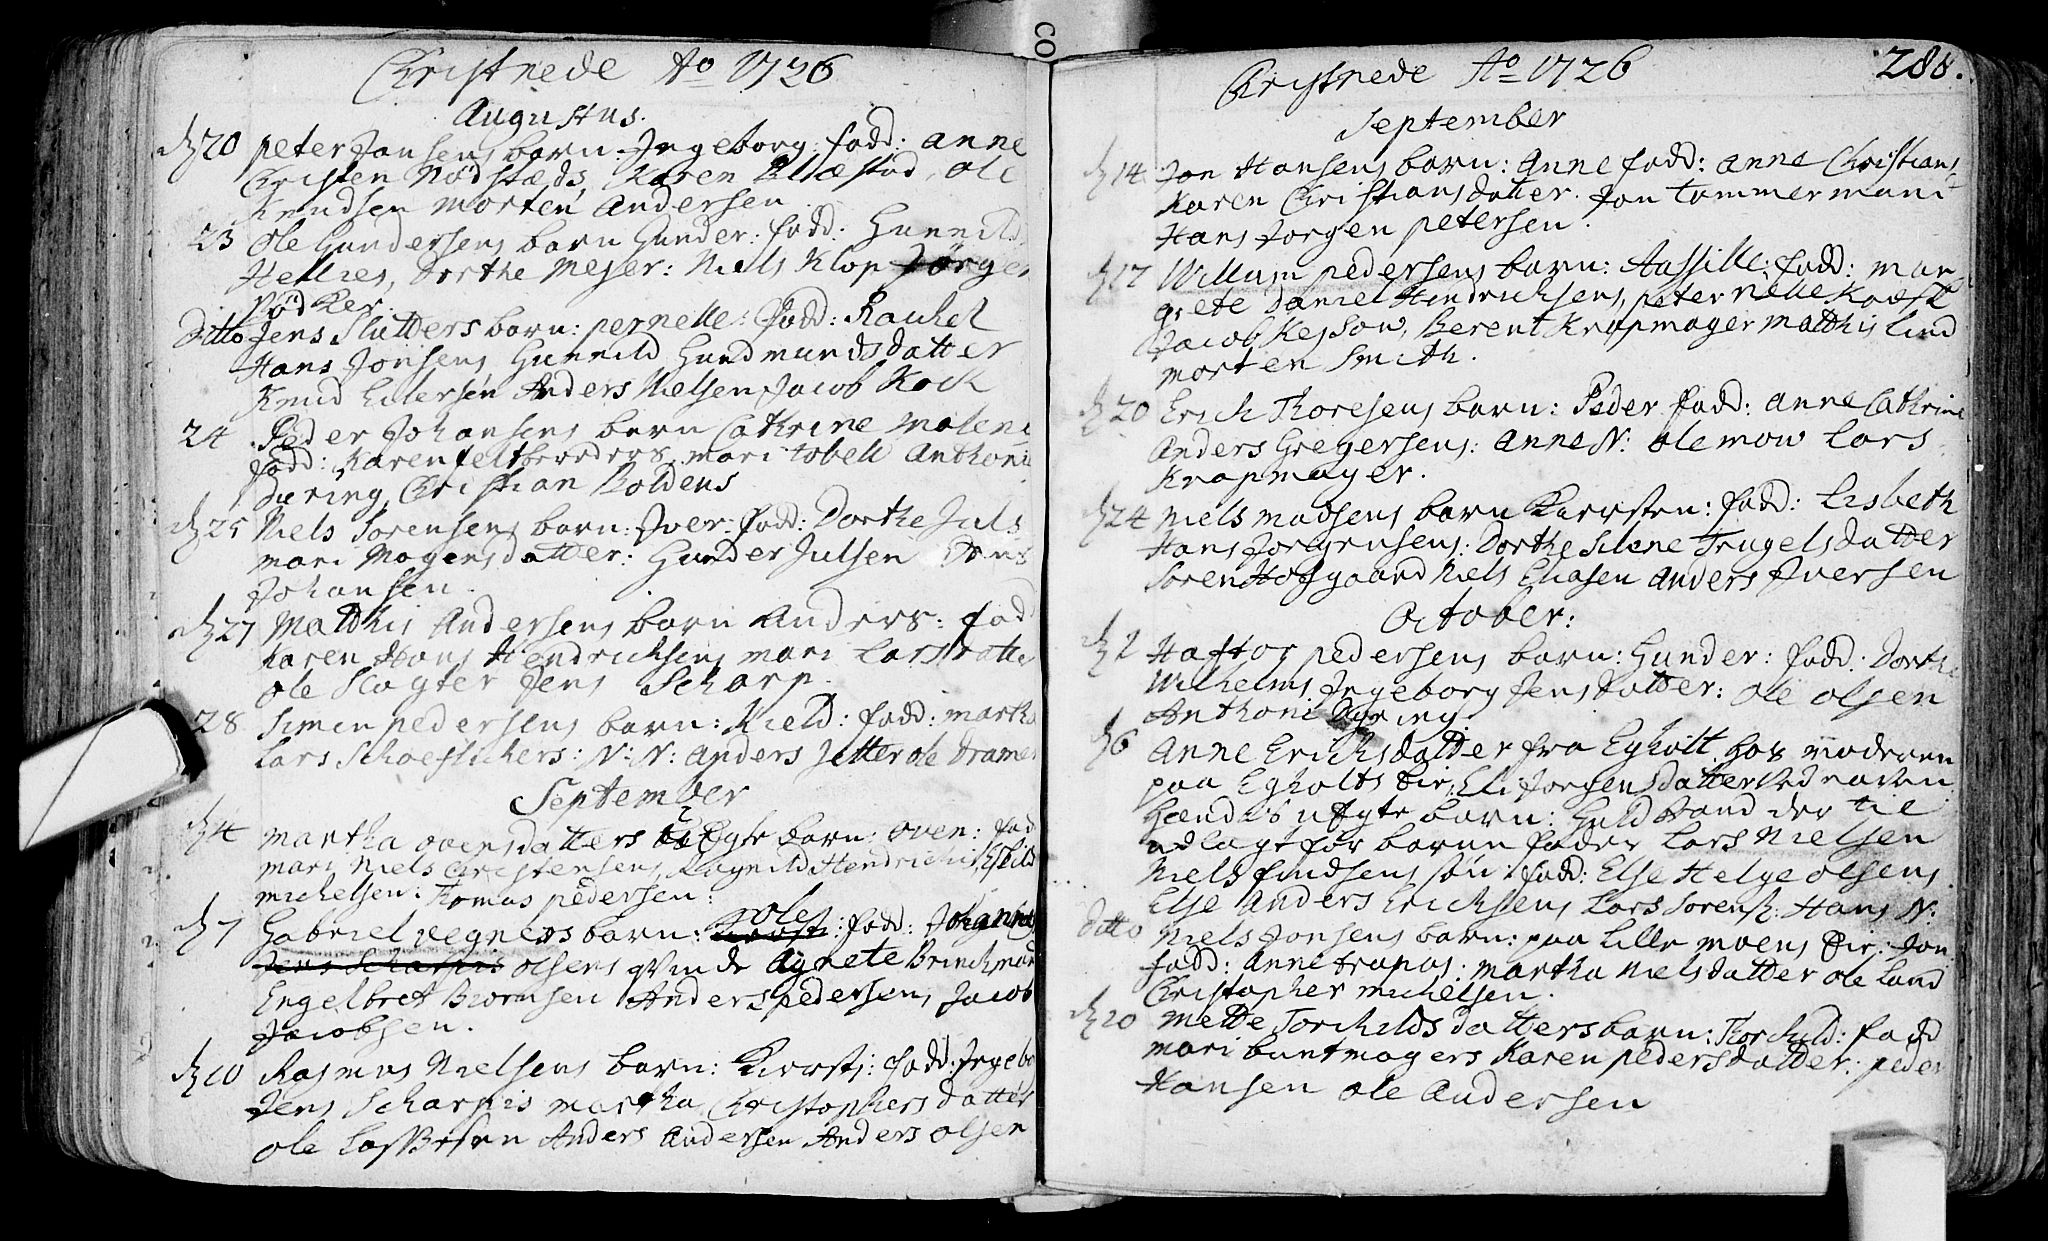 Christnede Ao 1726
Augustus.
d 20 peter Jansens barn: Ingeborg: fadd: anne
Christen Nødstæds, Karen Blæstad, ole
Knudsen morten Andersen
23 ole Gundersens barn Gunder: fadd: Gunnild
Hellies, Dorthe Mejer: Niels Klop Jørgen
Bødker
Ditto Jens Slutters barn: pernelle: fadd: Rachel
Hans Jonsens Gunnild Gundmundsdatter
Knud Eilersen Anders Nielsen Jacob Kock
24 Peder Johansens barn Cathrine Malene
fadd: Karen feltbereders, mari tobell Anthoni
during Christian Boldens
d 25 Niels Sorensens barn: Iver: fadd: Dorthe Juls
mari Mogensdatter: Gunder Julsen
Johansen.
d 27 Matthis Andersens barn Anders: fad
Karen Hans Hendrichsens mari Lars
ole Slagter Jens Scharp.
28 Simen pedersens barn: Kield: fadd: martha
Lars N: N: Anders Jetter ole Dramen
September
d 4 martha ovensdatters uægte barn: oven: fad
mari Niels Christensens, Ragnild Hendrichs, Eskild
michelsen: Thomas pedersen:
d 7 Gabriel vegners barn: ole: fadd: Johannes
Jens Scharpis olsens qvinde Agnete Brinchman
Engelbret Biørnsen Anders pedersen, Jacob
Jacobsen.
d 10 Rasmus Nielsens barn: Kiersti: fadd: Ingebo
Jens Scharpis martha Christophersdatter
ole Lassesen Anders Andersen Anders olsen
Christnede Ao 1726
288.
September
d 14 Jon Hansens barn: Anne fadd: anne Christians
Karen Christiansdatter. Jon tømmermand
Hans Jorgen petersen.
d 17 Willum pedersens barn: Aassille: fadd: mar-
grete Daniel Hindrichsens, peternelle
Jacob Kessow, Berent Knapmager matthis Lind
morten Smith.
d 20 Erich Thoresens barn: Peder fadd: anne Cathrine
Anders Gregersens: Anne N: ole mow Lars
Knapmager.
d 24 Niels madsens barn Kiersten: fadd: Lisbeth
Hans Jorgensens: Dorthe Silene Trugelsdatter
Soren Hofgaard Niels Eliasen Anders Iversen
October:
d 2 Haftor pedersens barn: Gunder: fadd: Dorthe
Wilhelms, Ingeborg Jensdatter: ole olsen
Anthoni Dyring
d 6 Anne Erichsdatter fra Egholt hos moderen
paa Egholts Eie, Eli Jorgensdatter ved naven
Hendes uægte barn: Guldbrand der til
udlagt for barne fader Lars Nielsen
Niels Knudsens søn: fadd: Else Helge olsens
Else Anders Erichsens Lars Sorens: Hans N:
ditto Niels Jonsens barn: paa Lille moens Eie: Jon
fadd: Anne trapas: martha Nielsdatter ole Lund
Christopher michelsen.
d 20 mette Torchildsdatters barn: Torchild: fadd
mari buntmagers Karen pedersdatter: peder
Hansen ole Andersen